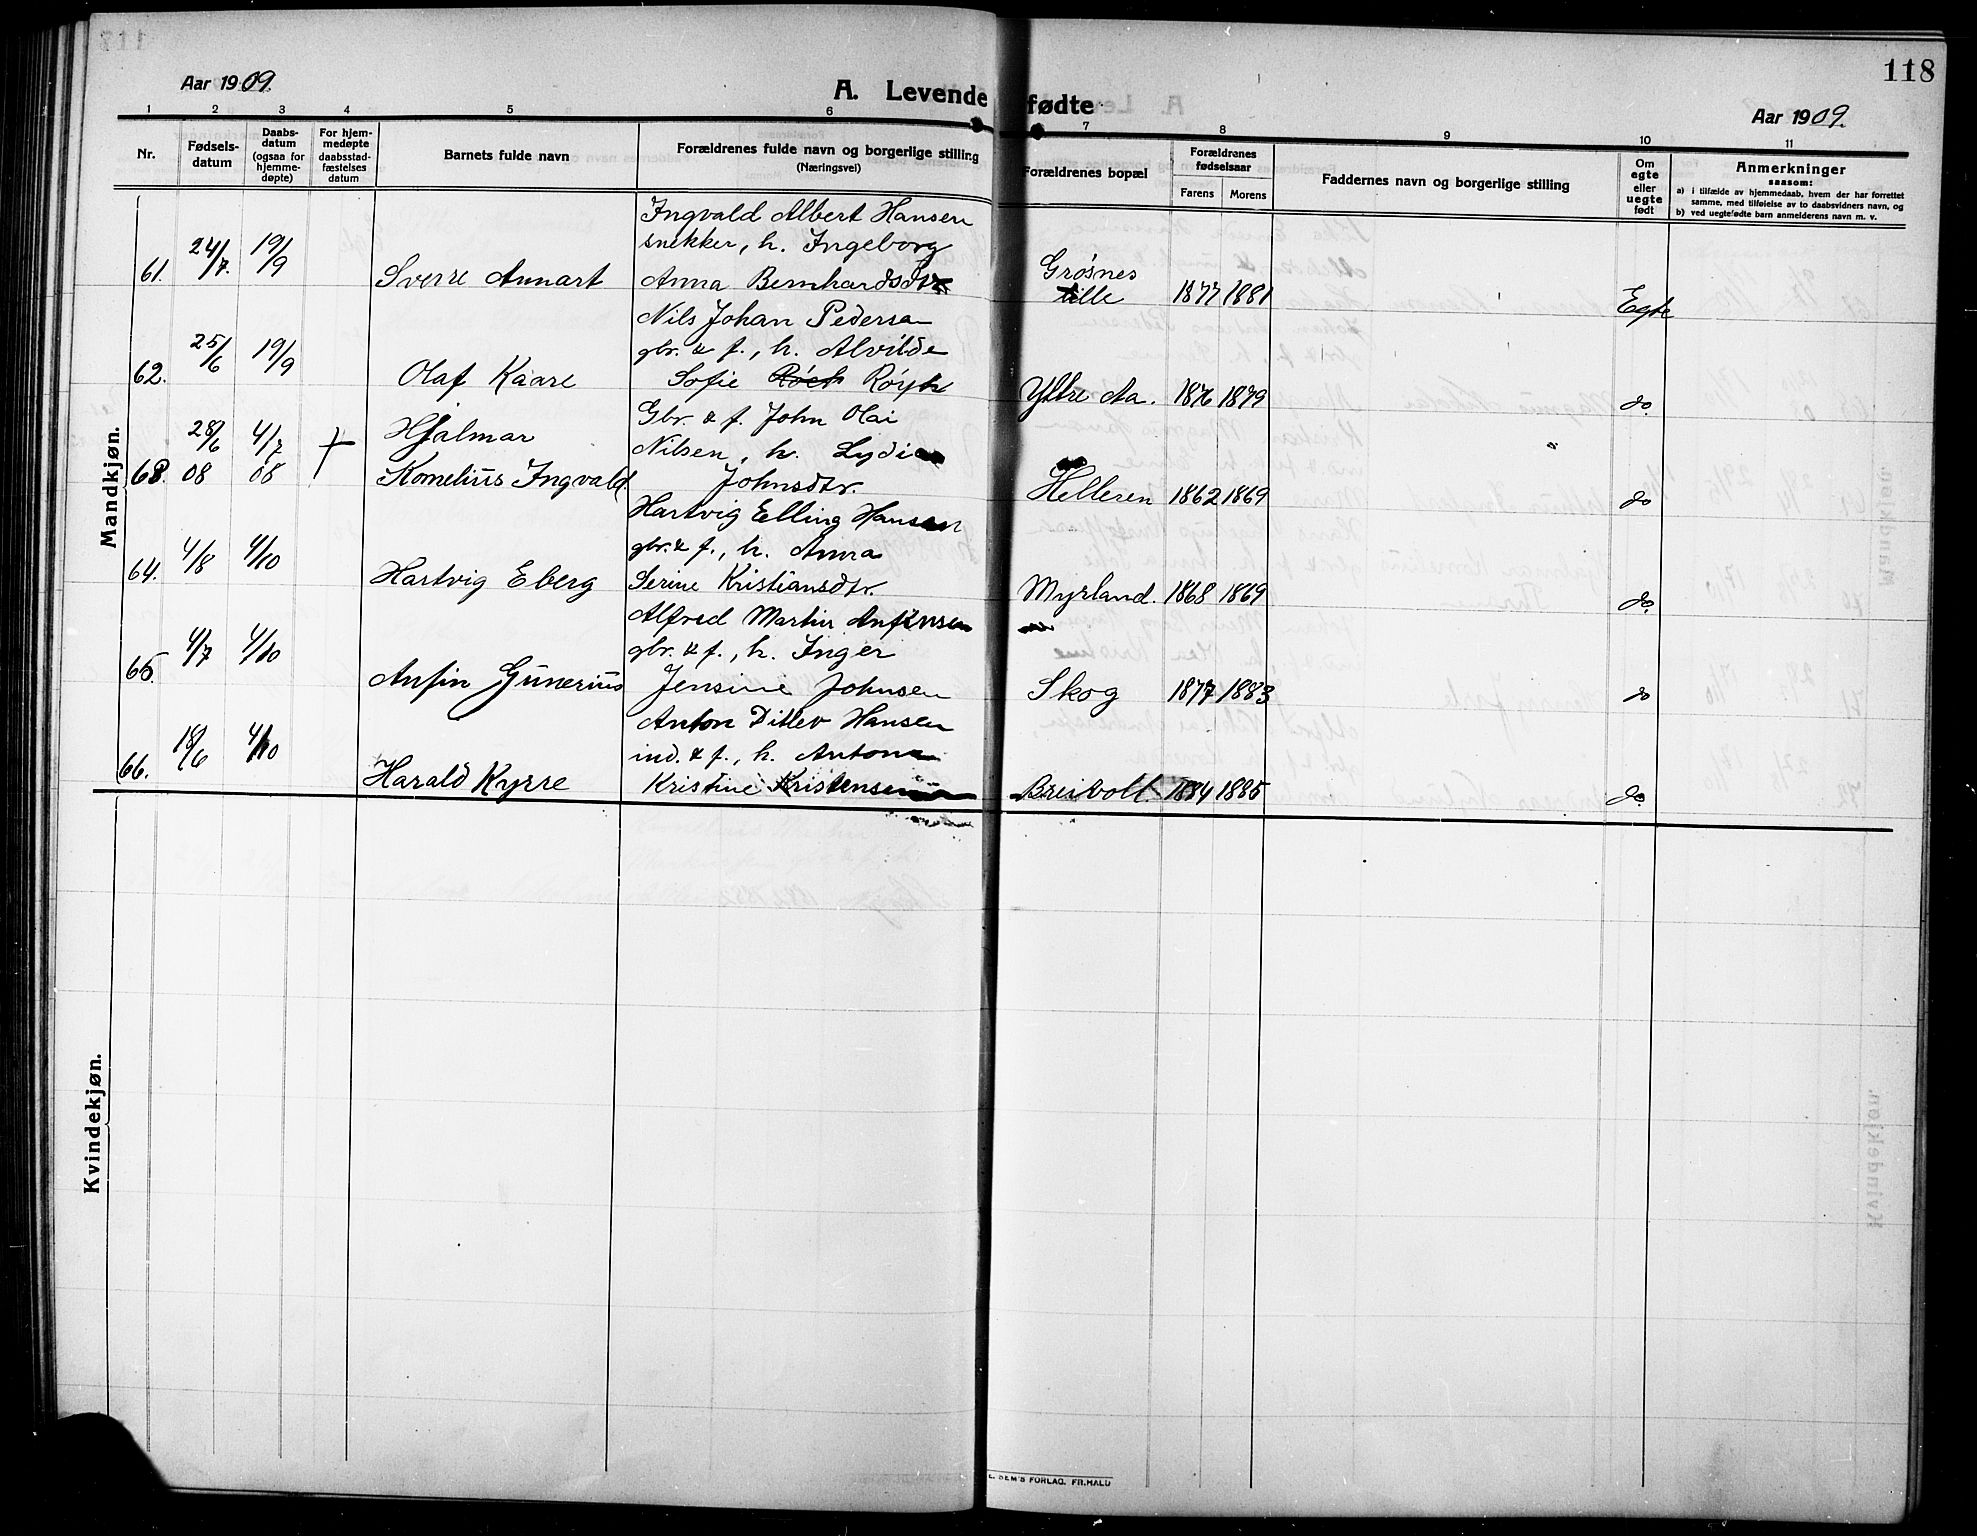 118
Aar 1909.
A. Levende fødte
Aar 1909.
1 2 3 4 5 6 7 8 9 10 11
Nr.
Fødsels-
datum
Daabs-
datum
(ogsaa for
hjemme-
døpte)
For hjem-
medøpte
daabsstad-
fæstelses
datum
Barnets fulde navn
Forældrenes fulde navn og borgerlige stilling
(Næringsvei)
Forældrenes bopæl
Forældrenes
fødselsaar
Farens Morens
Faddernes navn og borgerlige stilling
Om
egte
eller
uegte
født
Anmerkninger
saasom:
a) i tilfælde av hjemmedaab, hvem der har forrettet
samme, med tilføielse av to daabsvidners navn, og
b) ved uegtefødte barn anmelderens navn m. v.
Mandkjøn.
Ingvald Albert Hansen
snekker, h. Ingeborg
61. 24/7. 19/9 Sverre Annart Anna Bernhardsdtr Grøsnes
lille 1877 1881 Egte
Nils Johan Pedersen
gbr. & f., h. Alvilde
62. 25/6 19/9 Olaf Kaare Sofie Røyk Yttre Aa. 1876 1879 do.
Gbr. & f. John Olai
28/6 4/7 Hjalmar Nilsen, h. Lydia
63. 08 08 Kornelius Ingvald. Johnsdtr. Helleren 1862 1869 do
Hartvig Elling Hansen
gbr. & f., h. Anna
64. 4/8 4/10 Hartvig Eberg Serine Kristiansdtr. Myrland. 1868 1869 do.
Alfred Martin Anfinsen
gbr. & f., h. Inger
65. 4/7 4/10 Anfin Gunerius Jensine Johnsen Skog 1877 1883 do
Anton Ditlev Hansen
ind. & f., h. Antona
66. 18/6 4/10 Harald Kyrre Kristine Kristensen Breivoll. 1884 1885 do.
Kvindekjøn.
SEM'S FORLAG. FR.HALD